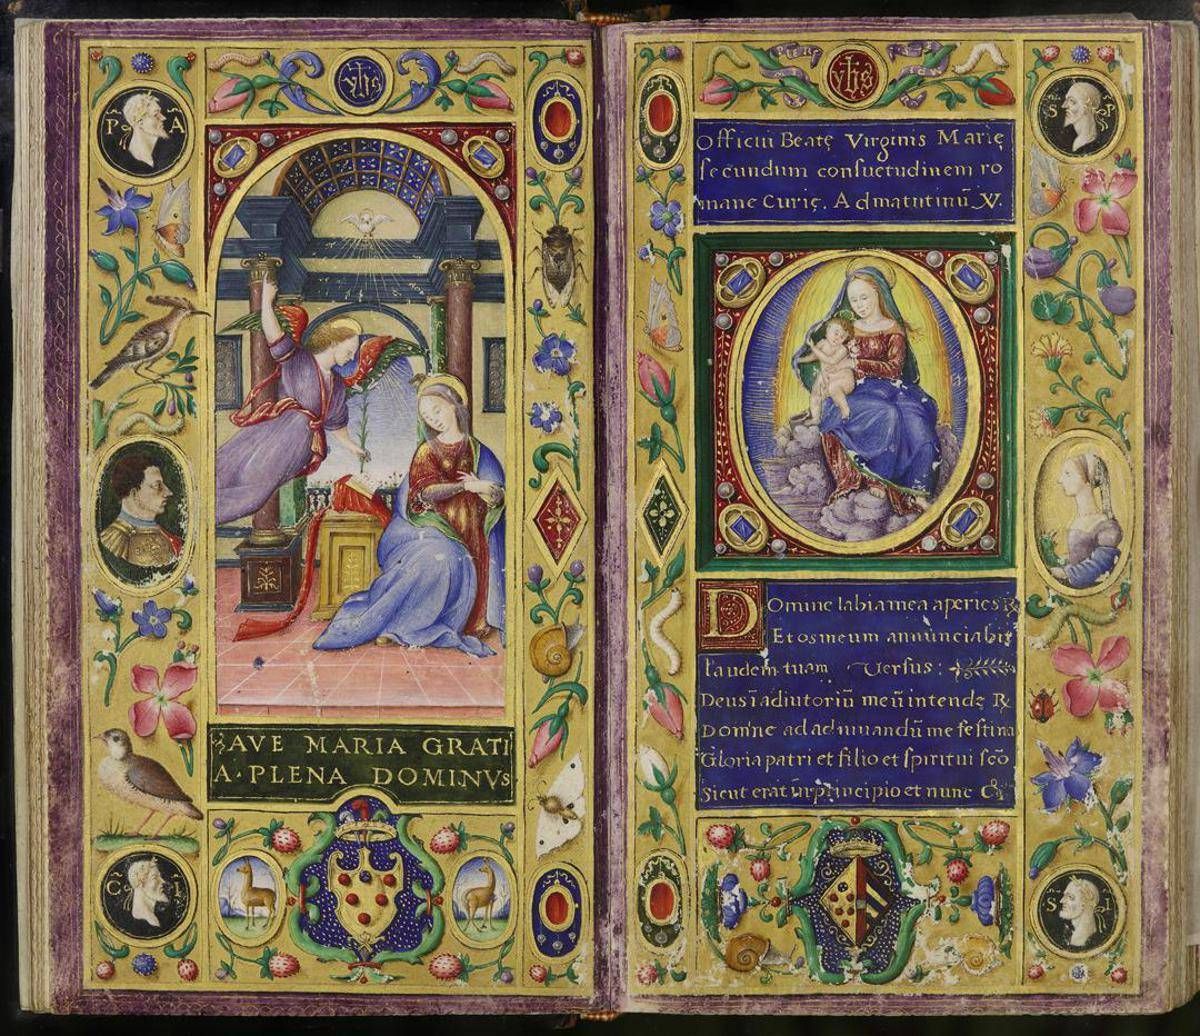 yhs
P A
AVE MARIA GRATI
A · PLENA DOMINVS
C I
yhs
S P
Officiu Beatę Virginis Marię
secundum consuetudinem ro
mane Curię. Ad matutinũ. V.
Domine labia mea aperies R
Et os meum annunciabit
laudem tuam Versus:
Deus ĩ adiutoriũ meũ intende R
Domine ad adiuuandũ me festina
Gloria patri et filio et spiritui scõ
Sicut erat in principio et nunc
S I